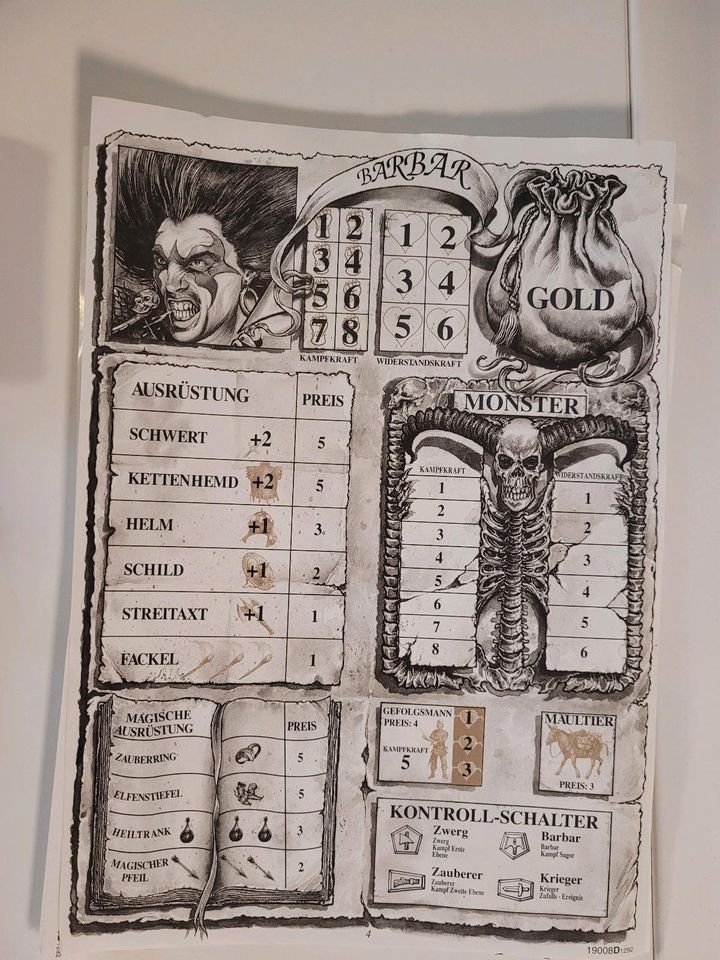 BARBAR
1 2
3 4
5 6
7 8
KAMPFKRAFT
1 2
3 4
5 6
WIDERSTANDSKRAFT
GOLD
AUSRÜSTUNG PREIS
SCHWERT +2 5
KETTENHEMD +2 5
HELM +1 3
SCHILD +1 2
STREITAXT +1 1
FACKEL 1
MONSTER
KAMPFKRAFT
1
2
3
4
5
6
7
8
WIDERSTANDSKRAFT
1
2
3
4
5
6
MAGISCHE
AUSRÜSTUNG
PREIS
ZAUBERRING 5
ELFENSTIEFEL 5
HEILTRANK 3
MAGISCHER
PFEIL
2
GEFOLGSMANN
PREIS: 4
KAMPFKRAFT
5
1
2
3
MAULTIER
PREIS: 3
KONTROLL-SCHALTER
Zwerg
Zwerg
Kampf Erste
Ebene
Barbar
Barbar
Kampf Sagor
Zauberer
Zauberer
Kampf Zweite Ebene
Krieger
Krieger
Zufalls - Ereignis
4
19008D1292